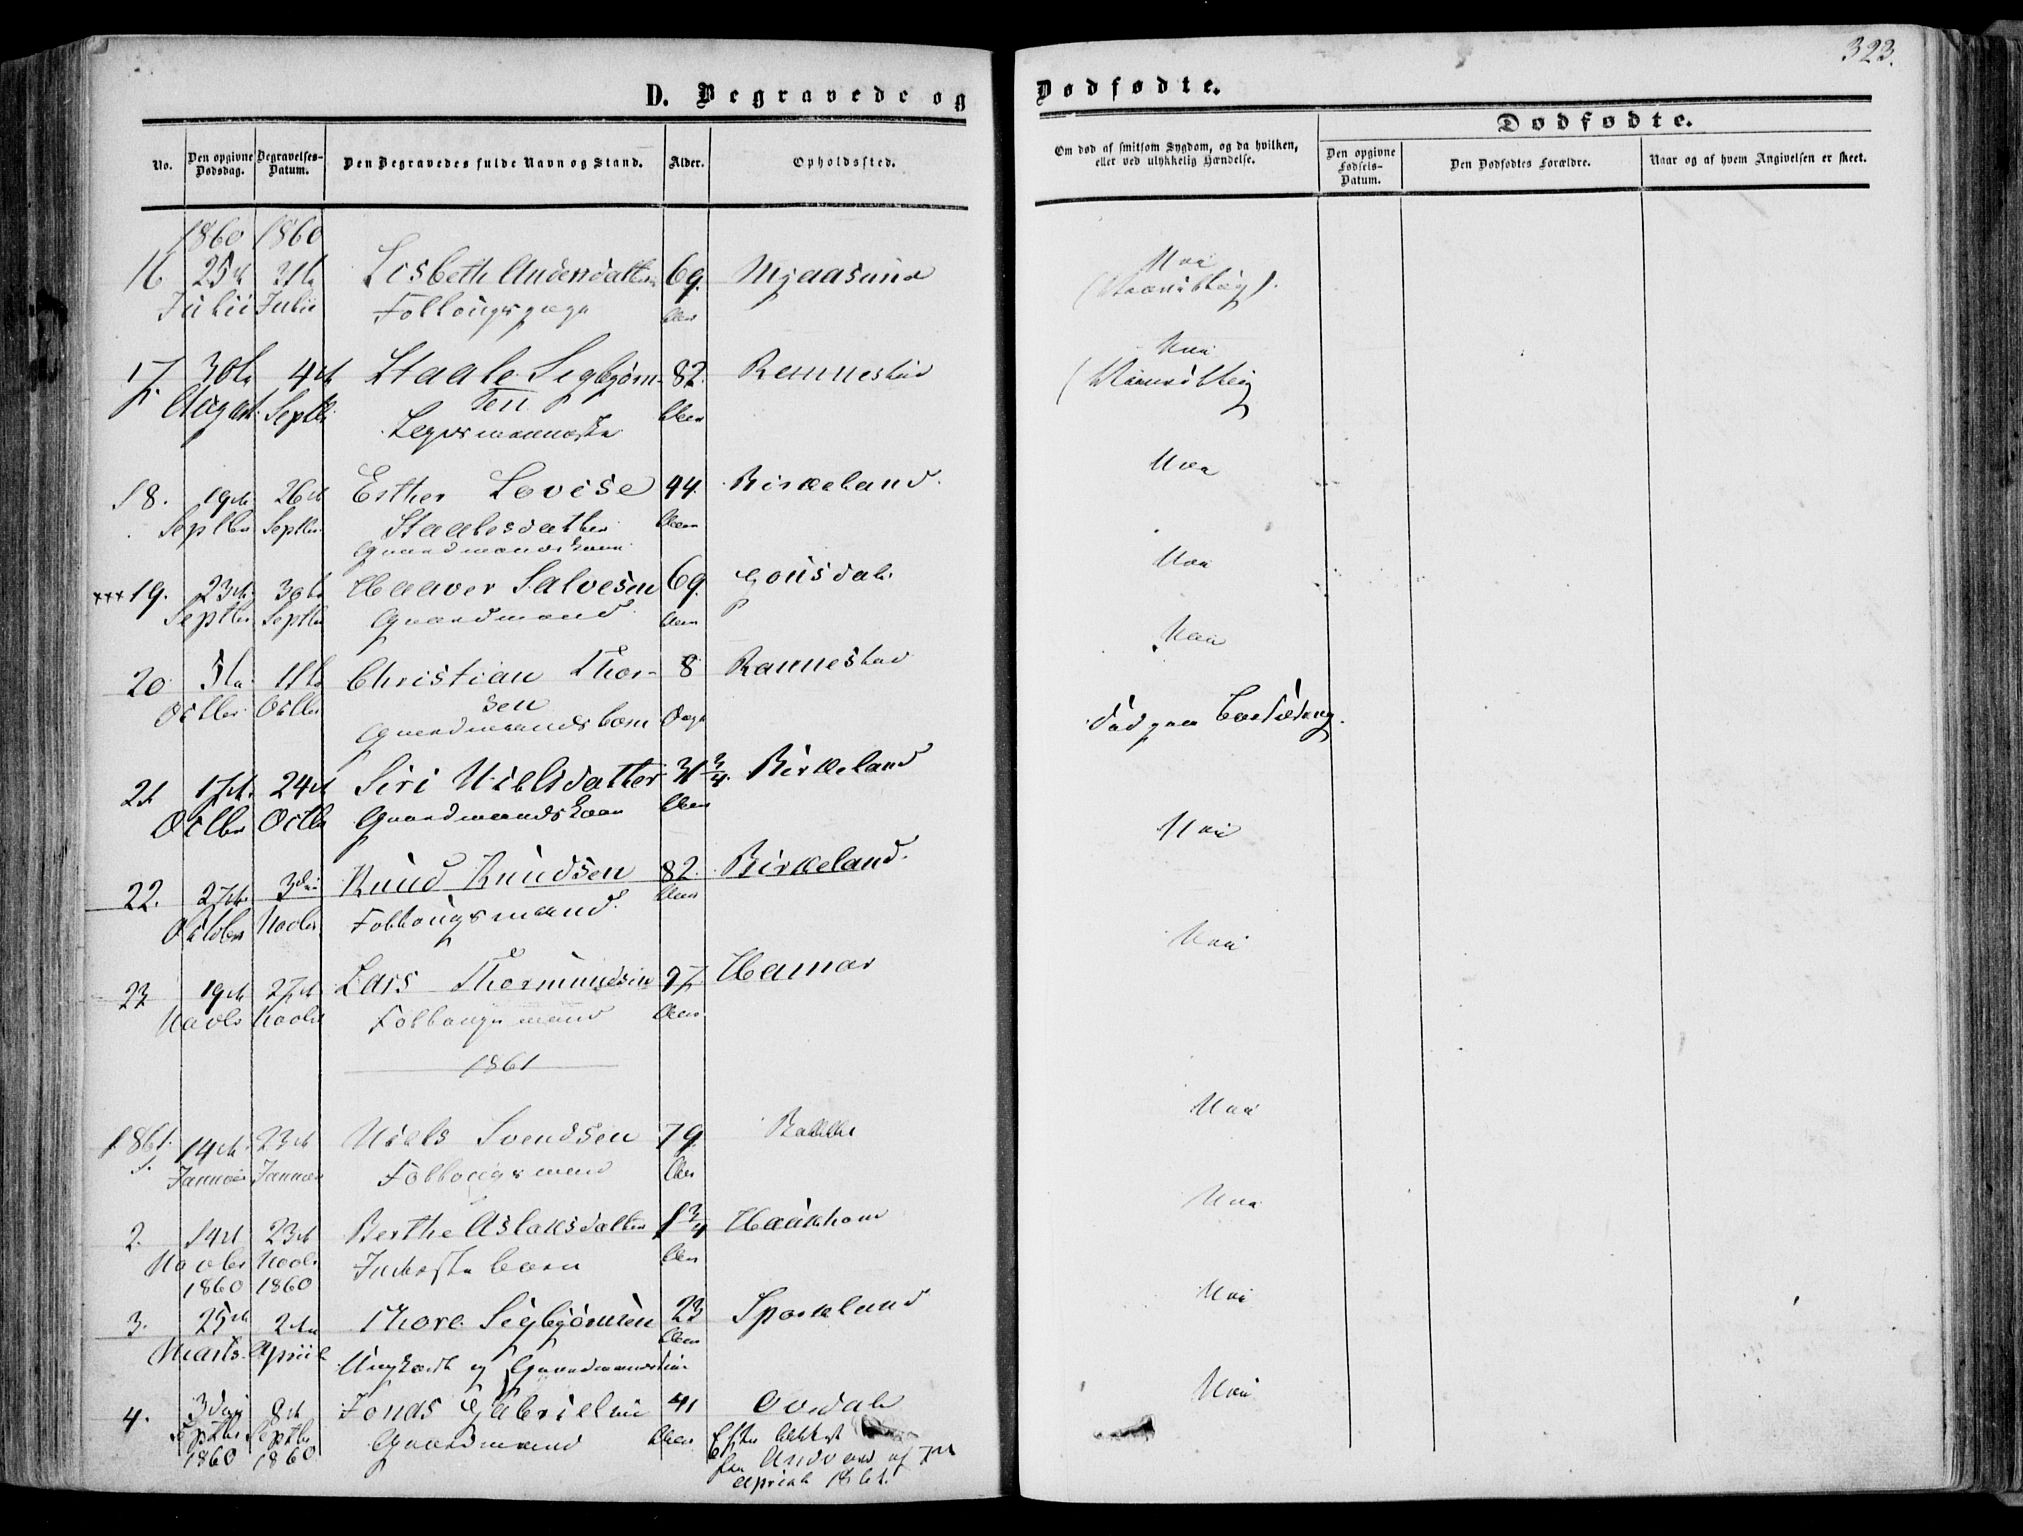 323.
D. Begravede og Dødfødte.
Dødfødte.
No.
Den opgivne Dødsdag.
Begravelses-Datum.
Den Begravedes fulde Navn og Stand.
Alder.
Opholdssted.
Om død af smitsom Sygdom, og da hvilken,
eller ved ulykkelig Hændelse.
Den opgivne Fødsels-Datum.
Den Dødfødtes Forældre.
Naar og af hvem Angivelsen er skeet.
1860 1860
16 25de 31te Lisbeth 69. Mjaasund Nei
Julii Julii Aar
17. 30te 4de Staale Sigbjørn- 82. Rannestad Nei
August Septbr sen Aar
18. 19de 26de Esther Lovise 44. Birkeland. Nei
Septbr Septbr Staalesdatter Aar
Gaardmandskone
xxx 19. 23de 30te Haaver Salvesen 69. Nei
Septbr Septbr Gaardmand Aar
20 5te 11te Christian Thor- 8 Rannestad Nei
Octbr Octbr sen
Gaardmandsbarn Dage
21 17de 24de Siri Nielsdatter 31 3/4. Birkeland død paa Barselseng.
Octbr Octbr Gaardmandskone Aar
22. 27de 3die Knud Knudsen 82. Birkeland. Nei
Oktobr Novbr Follougsmand. Aar
23 19de 27de Lars Hamar Nei
Novbr Novbr Follougsmand Aar
1861
1861. 14de 23de Niels Svendsen 79. Nei
1. Januar Januar Follougsmand Aar
2. 14de 23de Berthe Aslaksdatter 1 3/4 Nei
Novbr Novbr barn Aar
1860 1860
3. 25de 2den Thore Sigbjørnsen 23 Nei
Marts April Ungkarl og Aar
4. 3die 8de Jonas Gabrielsen 41 Ovedal Nei
Septbr Septbr Gaardmand Aar Efter
1860 1860 fra af 7de
April 1861.